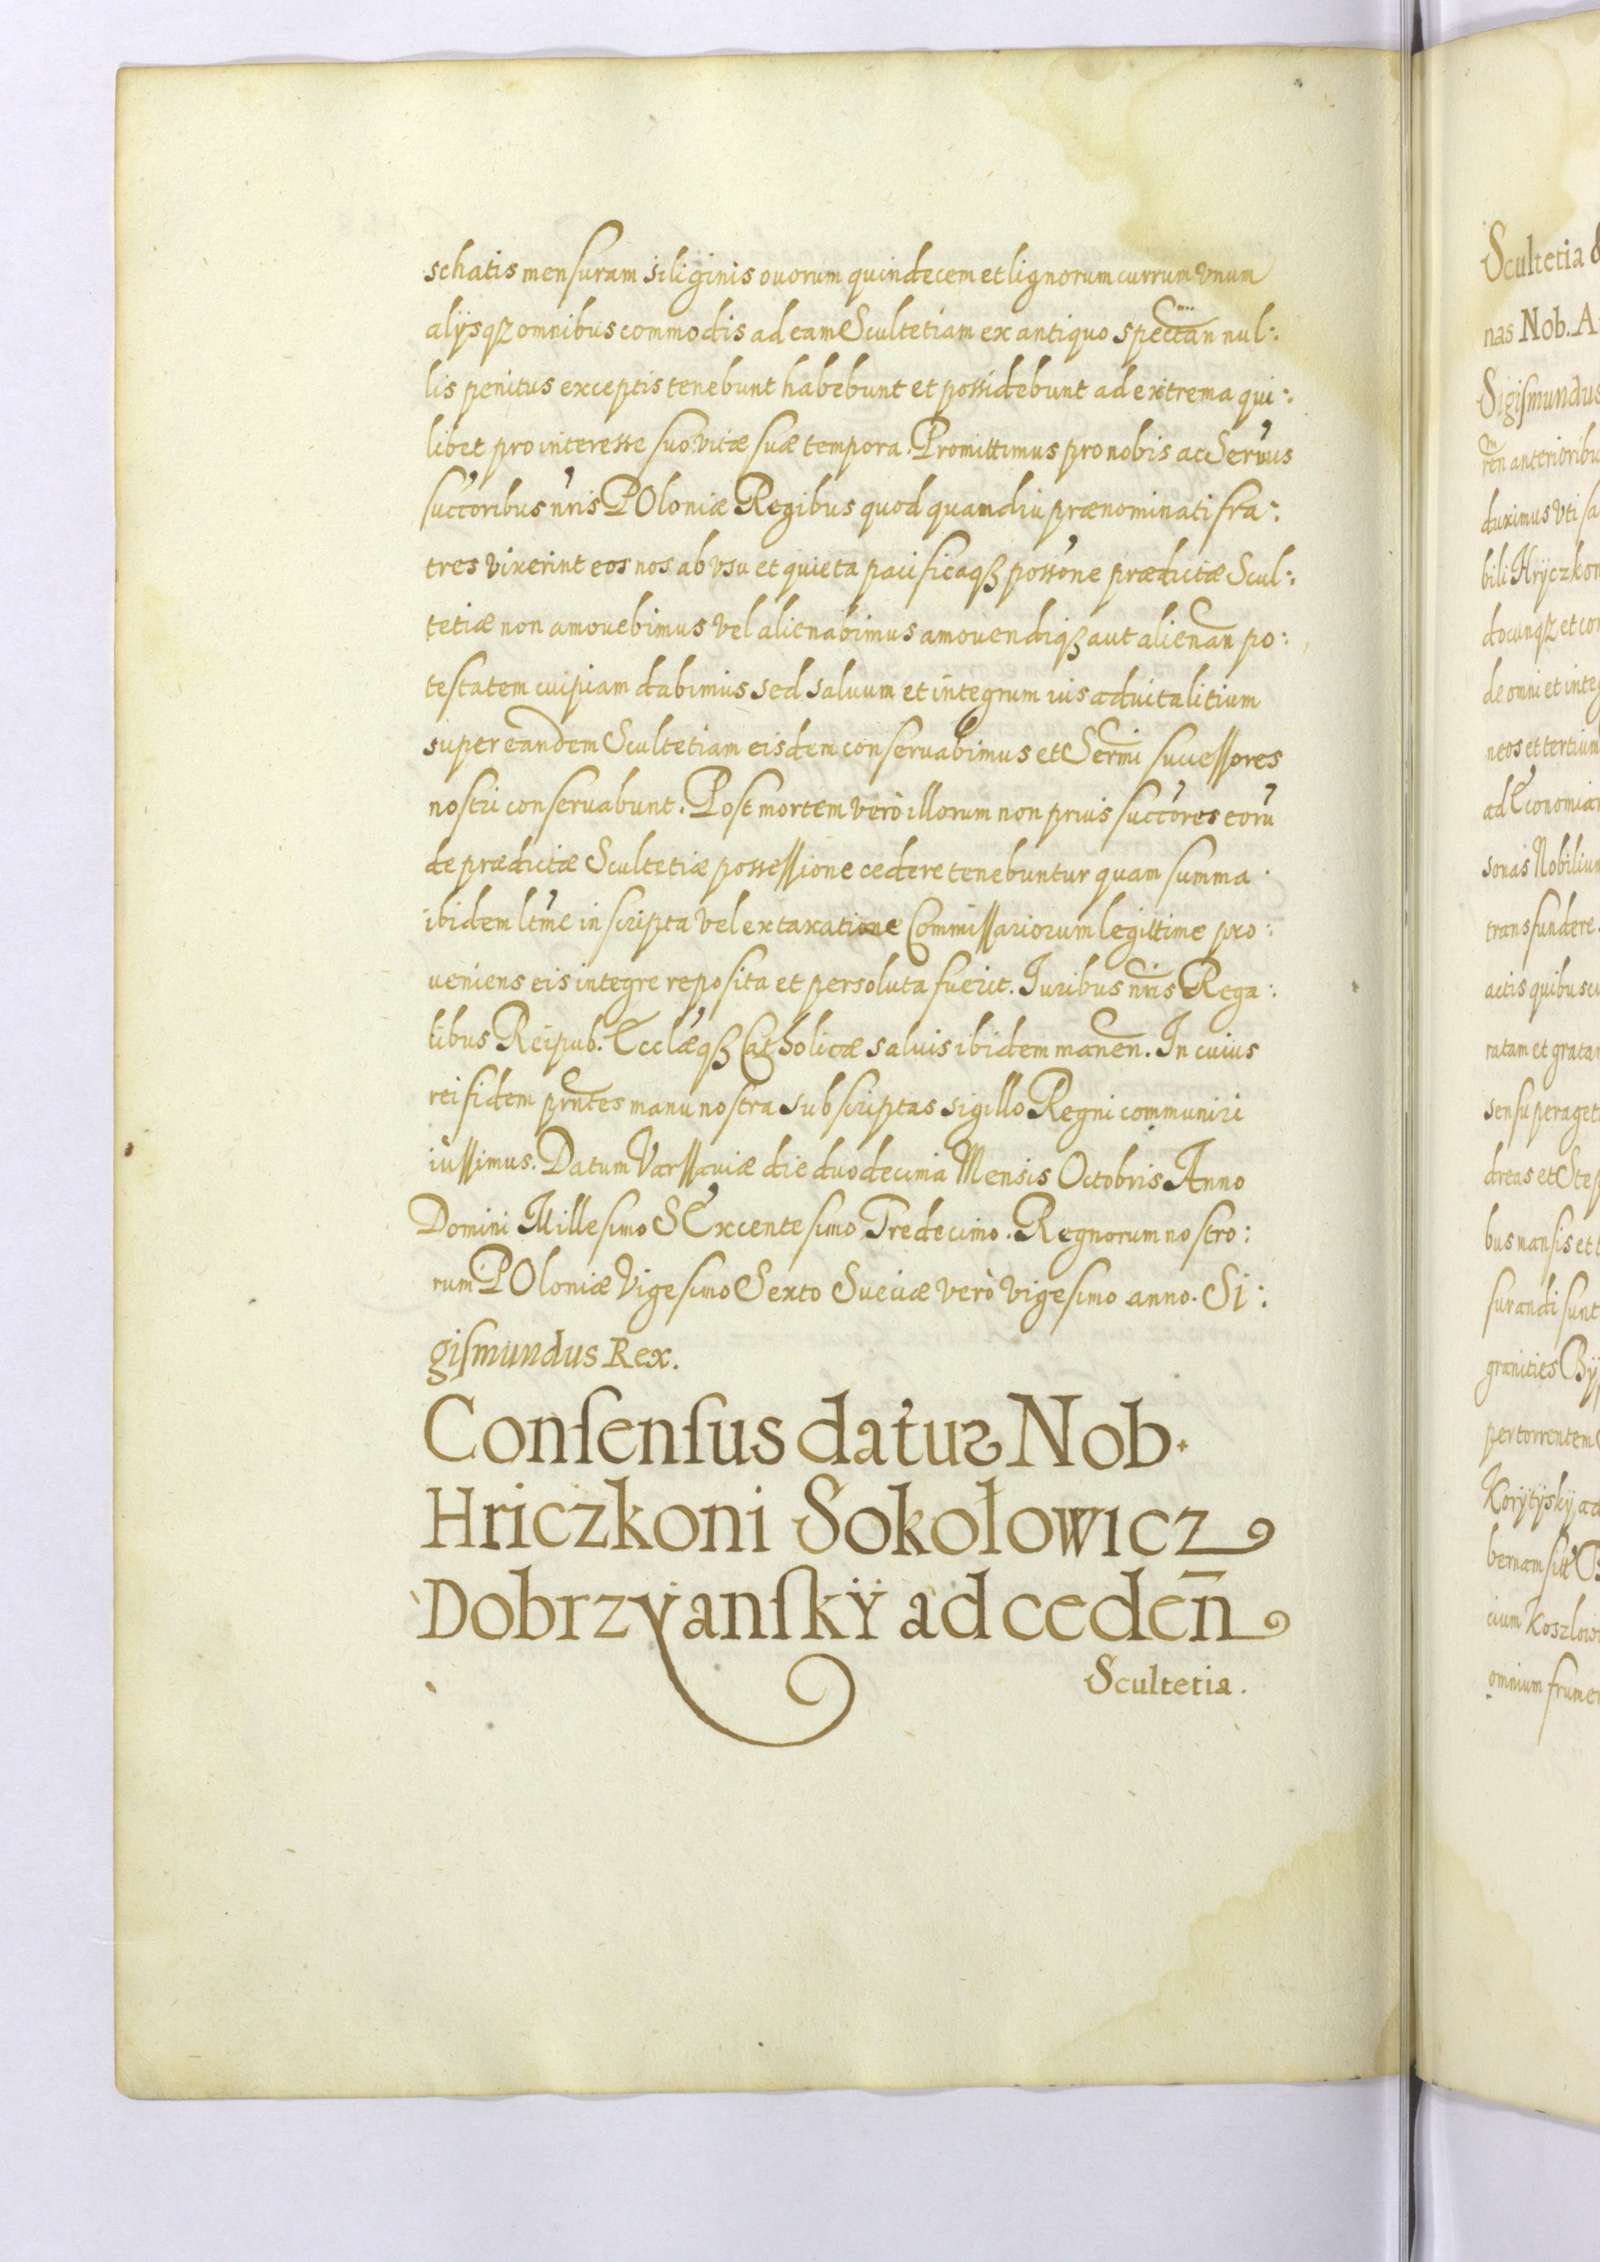 schatis mensuram siliginis ovorum quindecem et lignorum currum vnum
alijsqꝫ omnibus commodis ad eam Scultetiam ex antiquo spectan nul:
lis penitus exceptis tenebunt habebunt et possidebunt ad extrema qui:
libet pro interesse suo vitæ suæ tempora. Promittimus pro nobis ac Sermis
succoribus nris POloniæ Regibus quod quamdiu prænominati fra:
tres vixerint eos nos ab vsu et quieta pacificaqꝫ possone prædictæ Scul:
tetiæ non amouebimus vel alienabimus amouendiqꝫ aut alienan po:
testatem cuipiam dabimus sed saluum et integrum ius aduitalitium
super eandem Scultetiam eisdem conseruabimus et Sermi successores
nostri conseruabunt. Post mortem verò illorum non prius succores eorū
de prædictæ Scultetiæ possessione cedere tenebuntur quam summa
ibidem ltme inscripta vel ex taxatione Commissariorum legittime pro:
ueniens eis integre reposita et persoluta fuerit. Iuribus nris Rega:
libus Reipub. Ecclæqꝫ Catholicæ saluis ibidem manen. In cuius
rei fidem prntes manu nostra subscriptas sigillo Regni communiri
iussimus. Datum Varssauiæ die duodecima Mensis Octobris Anno
Domini Millesimo SExcentesimo Tredecimo. Regnorum nostro:
rum POloniæ Vigesimo Sexto Sueciæ verò vigesimo anno. Si:
gismundus Rex.
Conſenſus datus Nob.
Hriczkoni Sokołowicz
Dobrzyanſkÿ ad cedeñ
Scultetia.
Scultetia
nas Nob. A
Sigismundus
ren anterioribu
duximus vti sa
bili Hrÿczkon
docunqꝫ et con
de omni et integ
neos et tertium
ad Economiam
sonas Nobilium
transfundere
actis quibuscu
ratam et gratam
sensu peraget
dreas et Step
bus mansis et
surandi sunt
granities Bÿ
per torrentem
Korÿtÿskÿ ad
bernam sitt B
cium Koszlow
omnium frumen